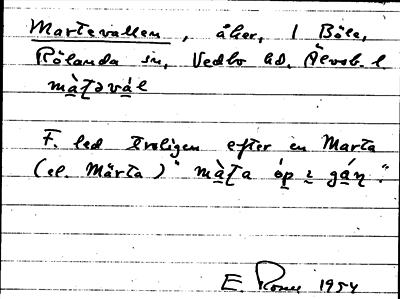 Martevallen, åker, 1 Böle,
Rölanda sn, Vedbo hd, Älvsb. l.
màʈəvál
F. led troligen efter en Marta
(el. Märta) "màʈa óp i gáɳ".
E. 1954